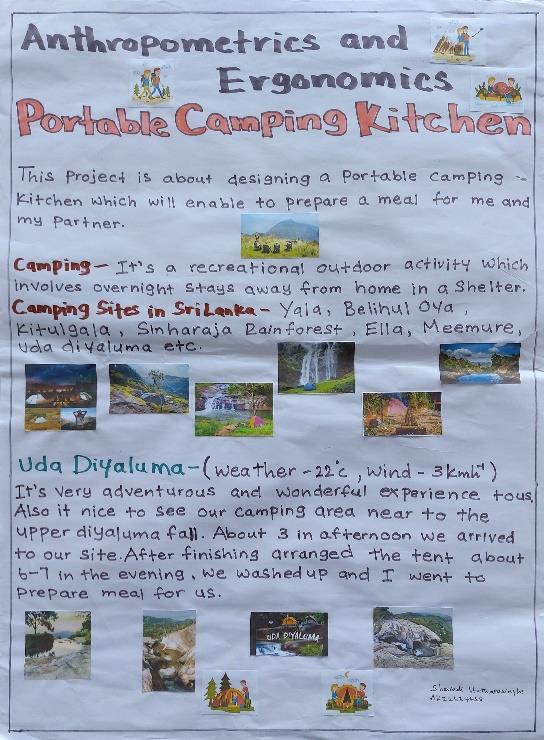 Anthropometrics and
Ergonomics
Portable Camping Kitchen
This Project is about designing a Portable camping -
Kitchen which will enable to prepare a meal for me and
my Partner.
Camping - It's a recreational outdoor activity which
involves overnight stays away from home in a Shelter.
Camping Sites in Sri Lanka - Yala, Belihul Oya,
Kitulgala, Sinharaja Rainforest, Ella, Meemure,
Uda diyaluma etc.
Uda Diyaluma - (weather - 22°c, wind - 3kmh⁻¹)
It's very adventurous and wonderful experience to us,
Also it nice to see our camping area near to the
upper diyaluma fall. About 3 in afternoon we arrived
to our site. After finishing arranged the tent about
6-7 in the evening, we washed up and I went to
Prepare meal for us.
UDA DIYALUMA